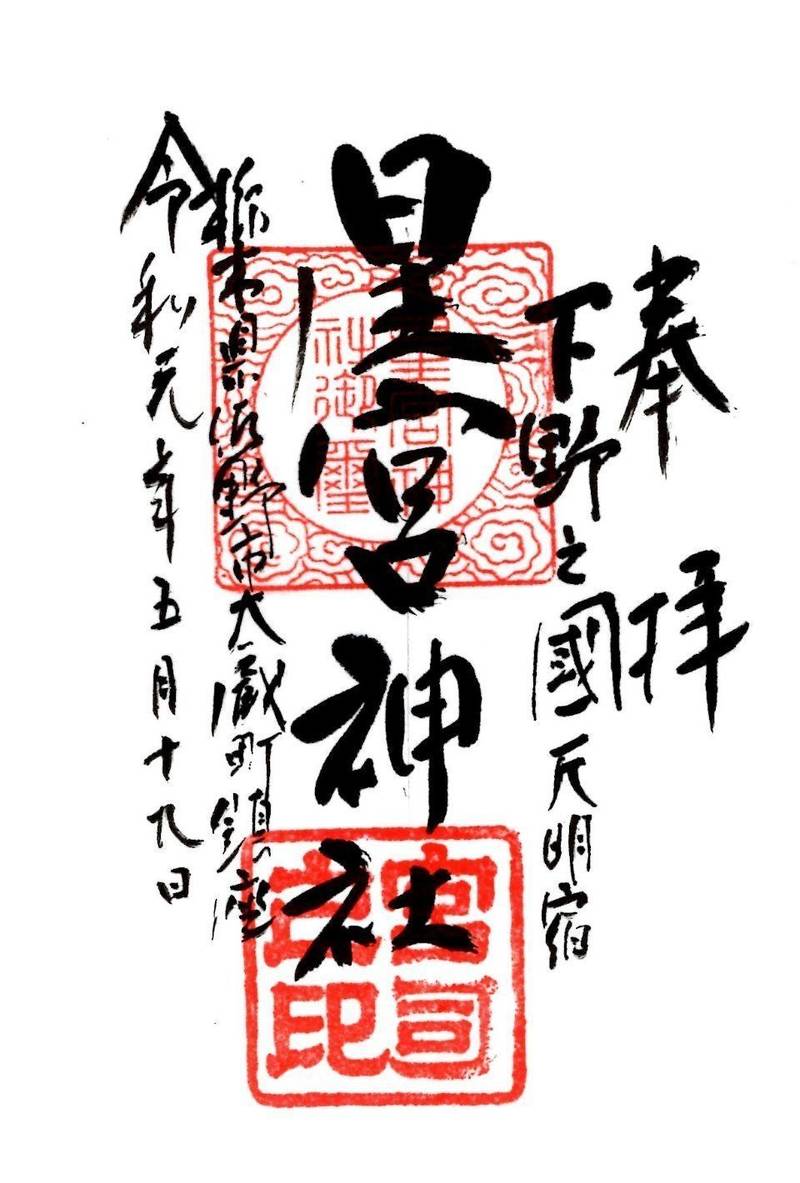 奉拝
下野之國天明宿
星宮神社
栃木県佐野市大蔵町鎮座
令和元年五月十九日
星宮神
社御璽
宮司
之印